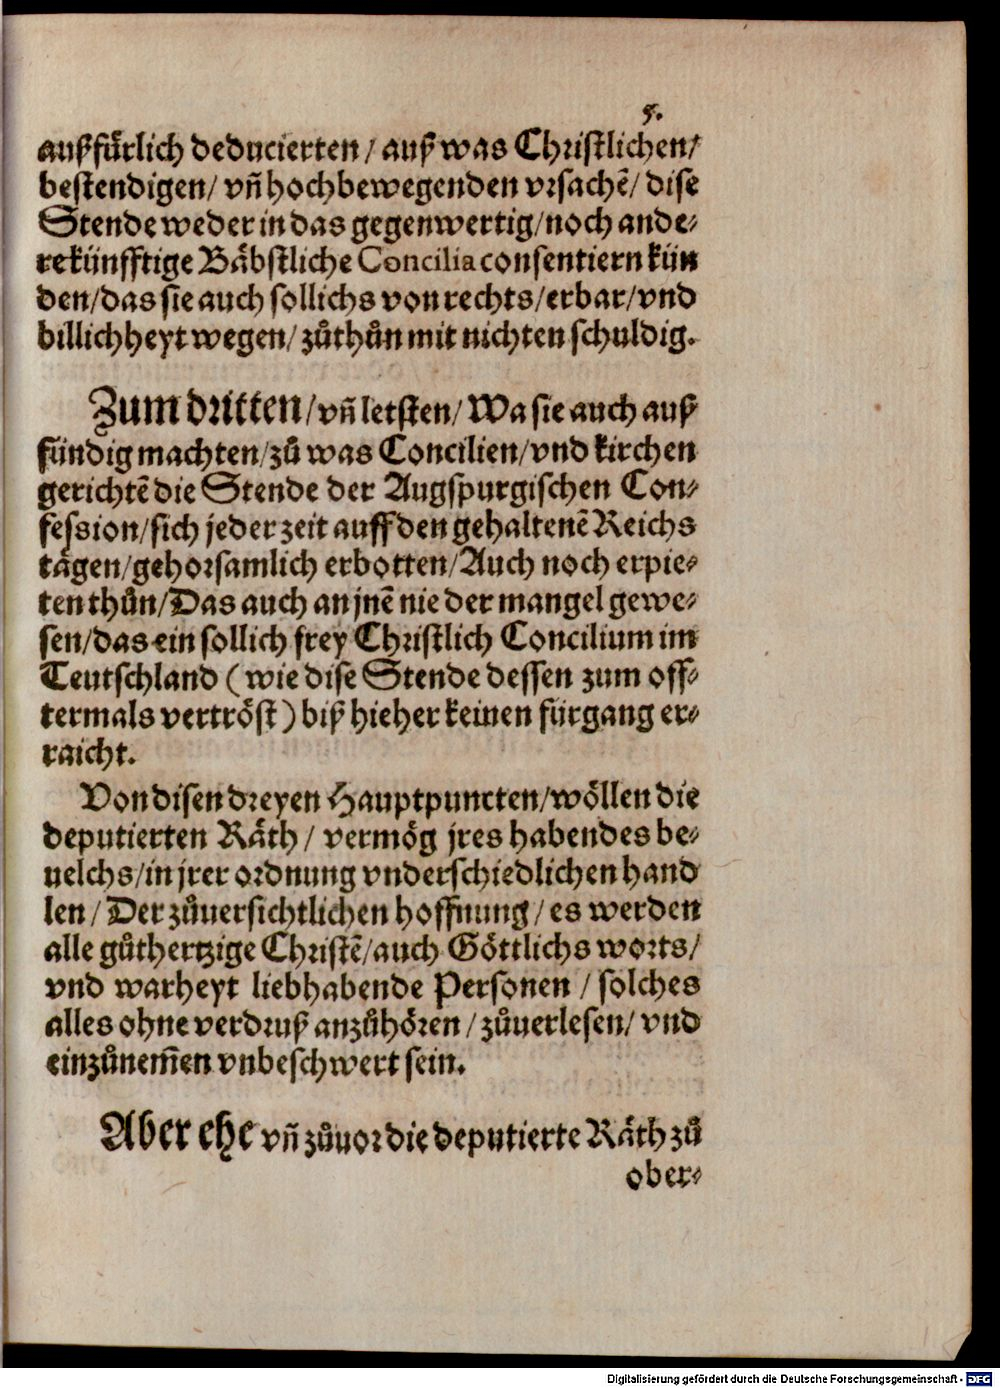 5.
außfürlich deducierten / auß was Christlichen /
bestendigen / vñ hochbewegenden vrsachẽ / dise
Stende weder in das gegenwertig / noch ande⸗
re künfftige Bäbstliche Concilia consentiern kün
den / das sie auch sollichs von rechts / erbar / vnd
billichheyt wegen / zůthůn mit nichten schuldig.
Zum dritten / vñ letsten / Wa sie auch auß
fündig machten / zů was Concilien / vnd kirchen
gerichtẽ die Stende der Augspurgischen Con⸗
fession / sich jeder zeit auff den gehaltenẽ Reichs
tägen / gehorsamlich erbotten / Auch noch erpie⸗
ten thůn / Das auch an jnẽ nie der mangel gewe⸗
sen / das ein sollich frey Christlich Concilium im
Teutschland ( wie dise Stende dessen zum off⸗
termals vertröst ) biß hieher keinen fürgang er⸗
raicht.
Von disen dreyen Hauptpuncten / wöllen die
deputierten Räth / vermög jres habendes be⸗
uelchs / in jrer ordnung vnderschiedlichen hand
len / Der zůuersichtlichen hoffnung / es werden
alle gůthertzige Christẽ / auch Göttlichs worts /
vnd warheyt liebhabende Personen / solches
alles ohne verdruß anzůhören / zůuerlesen / vnd
einzůnem̃en vnbeschwert sein.
Aber ehe vñ zůuor die deputierte Räth zů
ober⸗
Digitalisierung gefördert durch die Deutsche Forschungsgemeinschaft - DFG